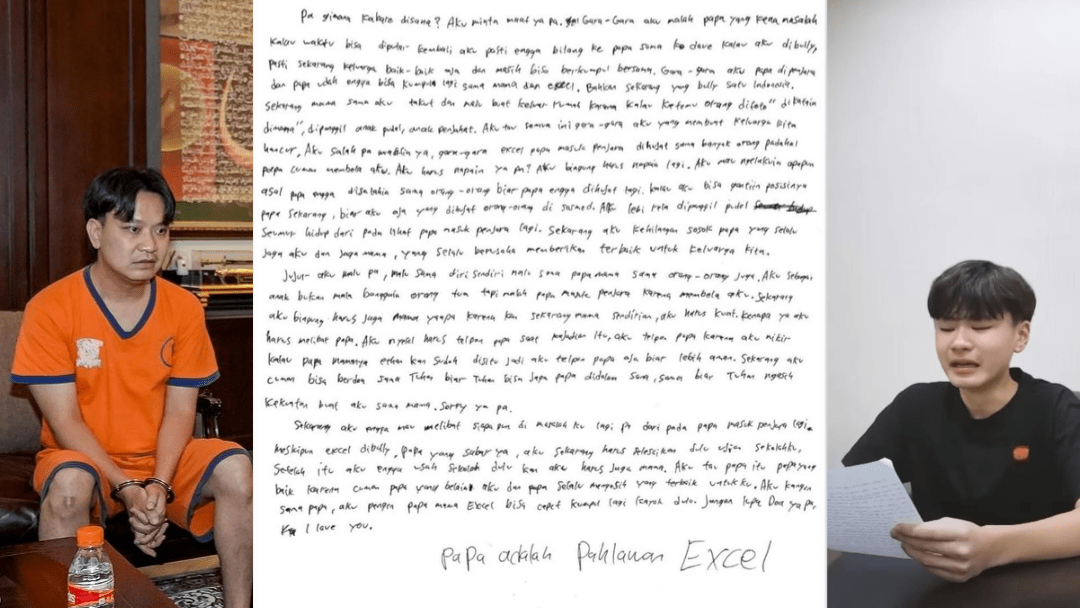 Pa gimana kabare disana? Aku minta maaf ya pa. Gara-Gara aku malah papa yang kena masalah
Kalau waktu bisa diputar kembali aku pasti engga bilang ke papa sama ko dave kalau aku dibully,
pasti sekarang keluarga baik-baik aja dan masih bisa berkumpul bersama. Gara-gara aku papa dipenjara
dan papa udah engga bisa kumpul lagi sama mama dan excel. Bahkan sekarang yang bully satu Indonesia.
Sekarang mama sama aku takut dan malu buat keluar rumah karena kalau ketemu orang difoto" dikatain
dimana", dipanggil anak pudel, anak penjahat. Aku tau semua ini gara-gara aku yang membuat keluarga kita
hancur. Aku salah pa maafin ya, gara-gara excel papa masuk penjara dihujat sama banyak orang padahal
papa cuman membela aku. Aku harus ngapain ya pa? Aku bingung harus ngapain lagi. Aku mau ngelakuin apapun
asal papa engga disalahin sama orang-orang biar papa engga dihujat lagi. kalau aku bisa gantiin posisinya
papa sekarang, biar aku aja yang dihujat orang-orang di sosmed. Aku lebi rela dipanggil pudel
Seumur hidup dari pada lihat papa masuk penjara lagi. Sekarang aku kehilangan sosok papa yang selalu
jaga aku dan jaga mama, yang selalu berusaha memberikan terbaik untuk keluarga kita.
Jujur aku malu pa, malu sama diri sendiri malu sma papa mama sama orang-orang juga. Aku sebagai
anak bukan mala banggain orang tua tapi malah papa masuk penjara karena membela aku. Sekarang
aku bingung harus jaga mama yaapa karena kan sekarang mama sendirian, aku harus kuat. Kenapa ya aku
harus melibat papa. Aku nyesal harus telpon papa saat kejadian itu, aku telpon papa karena aku mikir
kalau papa mamanya ethan kan sudah disitu jadi aku telpon papa aja biar lebih aman. Sekarang aku
cuman bisa berdoa sama Tuhan biar Tuhan bisa jaga papa didalam sana, sama biar Tuhan ngasih
kekuatan buat aku sama mama. Sorry ya pa.
Sekarang aku engga mau melibat siapa pun di masalah ku lagi pa dari pada papa masuk penjara lagi
meskipun excel dibully. Papa yang sabar ya, aku sekarang harus selesaikan dulu ujian sekolahku.
Setelah itu aku engga usah sekolah dulu kan aku harus jaga mama. Aku tau papa itu papa yang
baik karena cuman papa yang belain aku dan papa selalu mengasih yang terbaik untukku. Aku kangen
sama papa, aku pengen papa mama Excel bisa cepet kumpul lagi kayak dulu. Jangan lupa Doa ya pa,
I love you.
papa adalah Pahlawan Excel